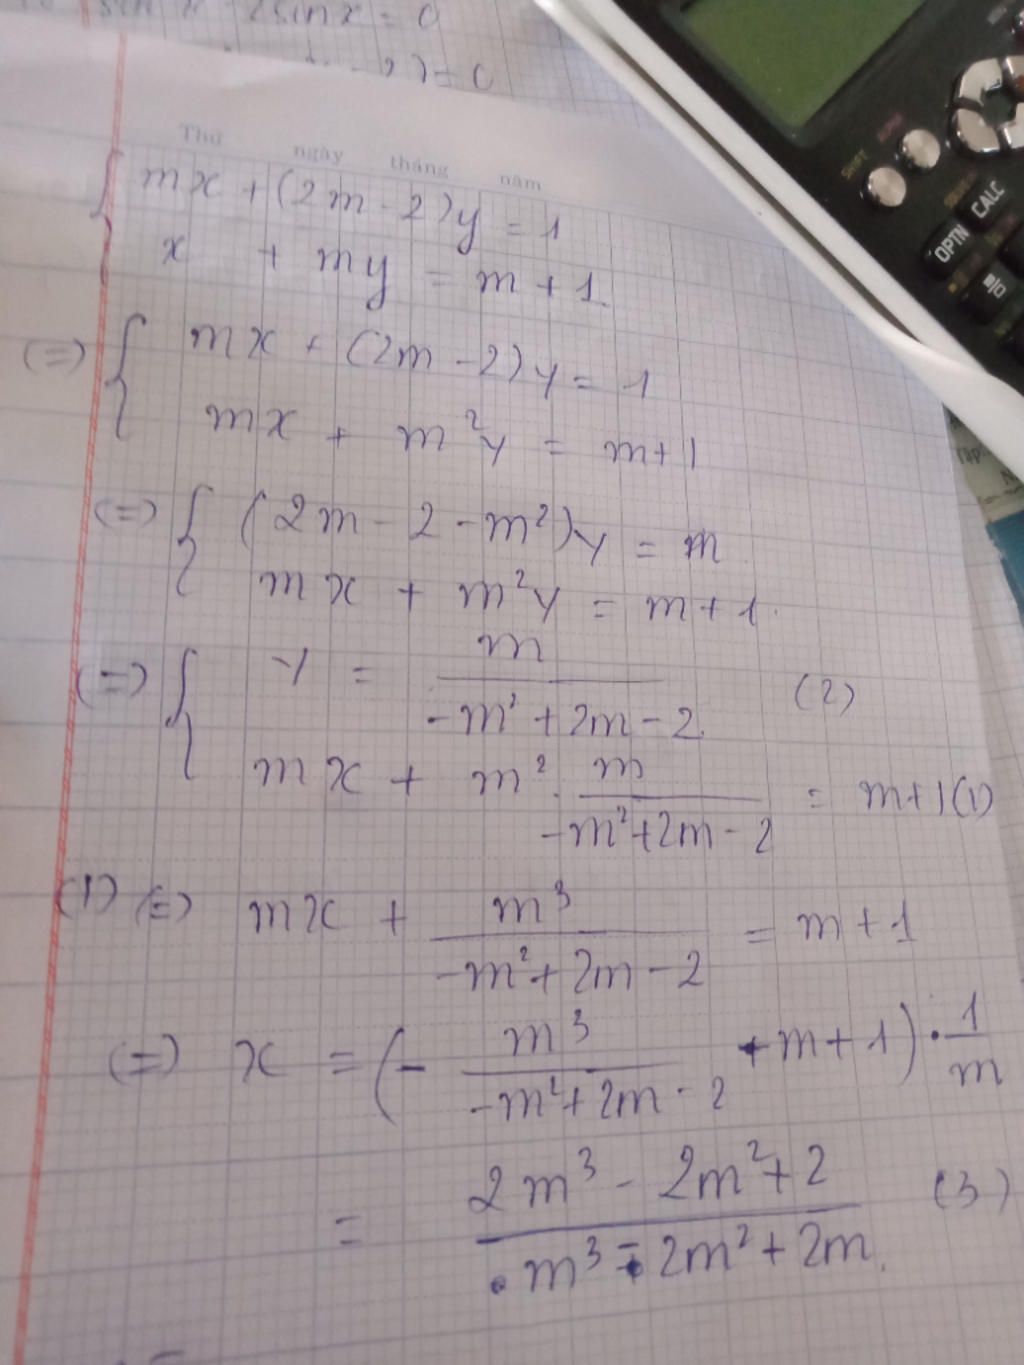 sin x 2sinx = 0
Thứ ngày tháng năm
{ mx + (2m - 2)y = 1
x + my = m + 1
(=) { mx + (2m - 2)y = 1
mx + m²y = m+1
(=) { (2m - 2 - m²)y = m
mx + m²y = m+1.
(=) { y = m / (-m² + 2m - 2) (2)
mx + m² . m / (-m²+2m - 2) = m+1 (1)
(1) (=) mx + m³ / (-m² + 2m - 2) = m + 1
(=) x = (- m³ / (-m²+2m - 2) + m + 1) . 1/m
= (2m³ - 2m² + 2) / (m³ - 2m² + 2m). (3)
SHIFT
ALPHA
OPTN
CALC